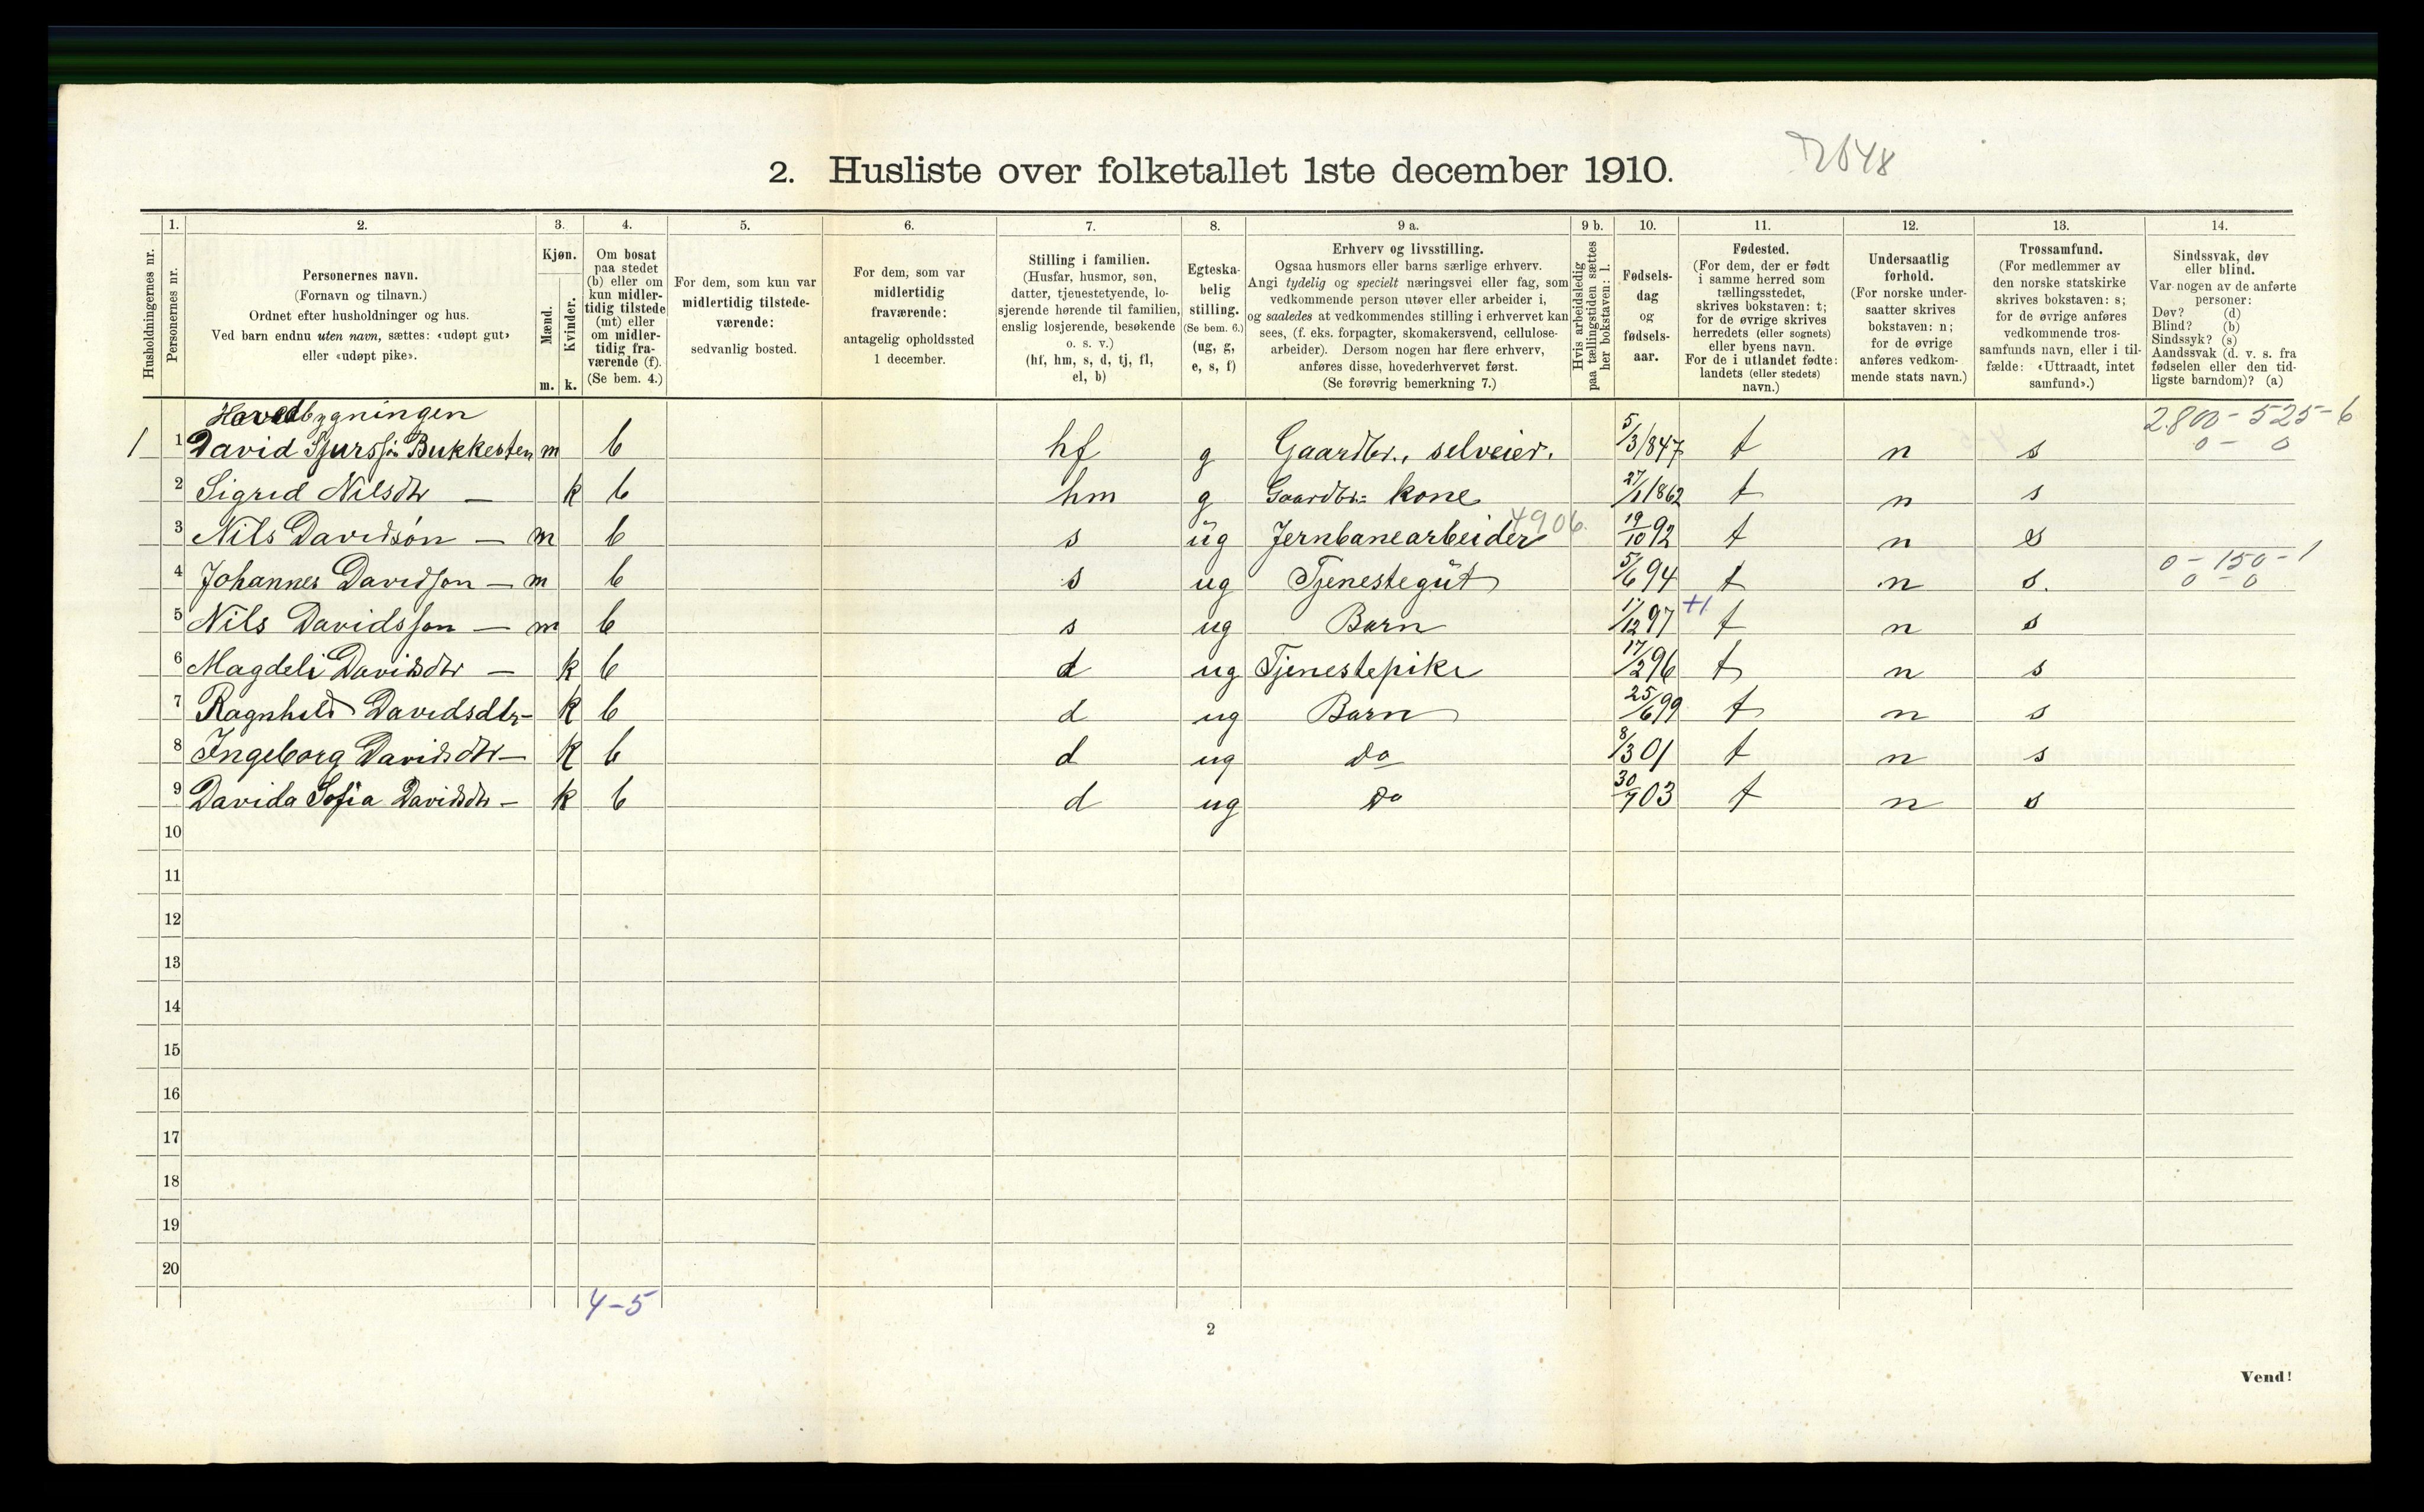 2. Husliste over folketallet 1ste december 1910.
1. 2. 3. 4. 5. 6. 7. 8. 9 a. 9 b. 10. 11. 12. 13. 14.
Husholdningernes nr.
Personernes nr.
Personernes navn.
(Fornavn og tilnavn.)
Ordnet efter husholdninger og hus.
Ved barn endnu uten navn, sættes: «udøpt gut»
eller «udøpt pike».
Kjøn.
Mænd.
Kvinder.
m. k.
Om bosat
paa stedet
(b) eller om
kun midler-
tidig tilstede
(mt) eller
om midler-
tidig fra-
værende (f).
(Se bem. 4.)
For dem, som kun var
midlertidig tilstede-
værende:
sedvanlig bosted.
For dem, som var
midlertidig
fraværende:
antagelig opholdssted
1 december.
Stilling i familien.
(Husfar, husmor, søn,
datter, tjenestetyende, lo-
sjerende hørende til familien,
enslig losjerende, besøkende
o. s. v.)
(hf, hm, s, d, tj, fl,
el, b)
Egteska-
belig
stilling.
(Se bem. 6.)
(ug, g,
e, s, f)
Erhverv og livsstilling.
Ogsaa husmors eller barns særlige erhverv.
Angi tydelig og specielt næringsvei eller fag, som
vedkommende person utøver eller arbeider i,
og saaledes at vedkommendes stilling i erhvervet kan
sees, (f. eks. forpagter, skomakersvend, cellulose-
arbeider). Dersom nogen har flere erhverv,
anføres disse, hovederhvervet først.
(Se forøvrig bemerkning 7.)
Hvis arbeidsledig
paa tællingstiden sættes
her bokstaven: l.
Fødsels-
dag
og
fødsels-
aar.
Fødested.
(For dem, der er født
i samme herred som
tællingsstedet,
skrives bokstaven: t;
for de øvrige skrives
herredets (eller sognets)
eller byens navn.
For de i utlandet fødte:
landets (eller stedets)
navn.)
Undersaatlig
forhold.
(For norske under-
saatter skrives
bokstaven: n;
for de øvrige
anføres vedkom-
mende stats navn.)
Trossamfund.
(For medlemmer av
den norske statskirke
skrives bokstaven: s;
for de øvrige anføres
vedkommende tros-
samfunds navn, eller i til-
fælde: «Uttraadt, intet
samfund».)
Sindssvak, døv
eller blind.
Var nogen av de anførte
personer:
Døv? (d)
Blind? (b)
Sindssyk? (s)
Aandssvak (d. v. s. fra
fødselen eller den tid-
ligste barndom)? (a)
Hovedbygningen 2.800 - 525 - 6
1 1 David Sjursson Bukkesten m b hf g Gaardbr., selveier. 5/3 1847 t n s 0 - 0
2 Sigrid Nilsdtr — k b hm g Gaardbr: kone 27/1 1862 t n s
3 Nils Davidson — m b s ug Jernbanearbeider 4906. 19/10 92 t n s
0 - 150 - 1
4 Johannes Davidson — m b s ug Tjenestegut 5/6 94 t n s. 0 - 0
5 Nils Davidsson — m b s ug Barn 17/12 97 +1. t n s
6 Magdeli Davidsdtr — k b d ug Tjenestepike 17/2 96 t n s
7 Ragnhild Davidsdtr — k b d ug Barn 25/6 99 t n s
8 Ingeborg Davidsdtr — k b d ug do 8/3 01 t n s
9 Davida Sofia Davidsdtr — k b d ug do 30/7 03 t n s
10
11
12
13
14
15
16
17
18
19
20
4 - 5
2
Vend!